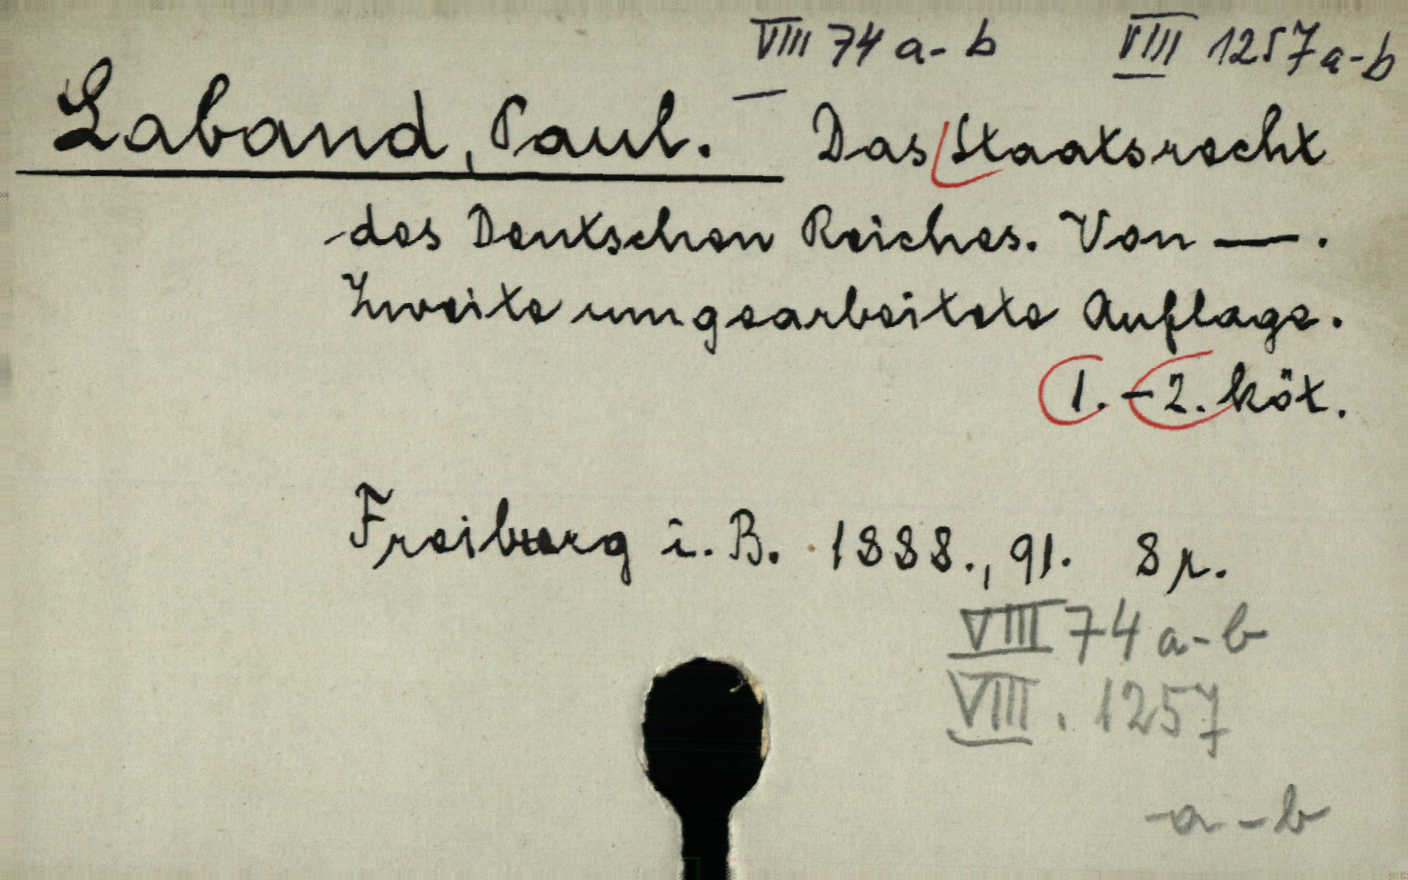 VIII 74 a-b VIII 1257 a-b
Laband, Paul. Das Staatsrecht
des Deutschen Reiches. Von —.
Zweite umgearbeitete Auflage.
1.-2. köt.
Freiburg i. B. 1888., 91. 8 r.
VIII 74 a-b
VIII. 1257
a-b